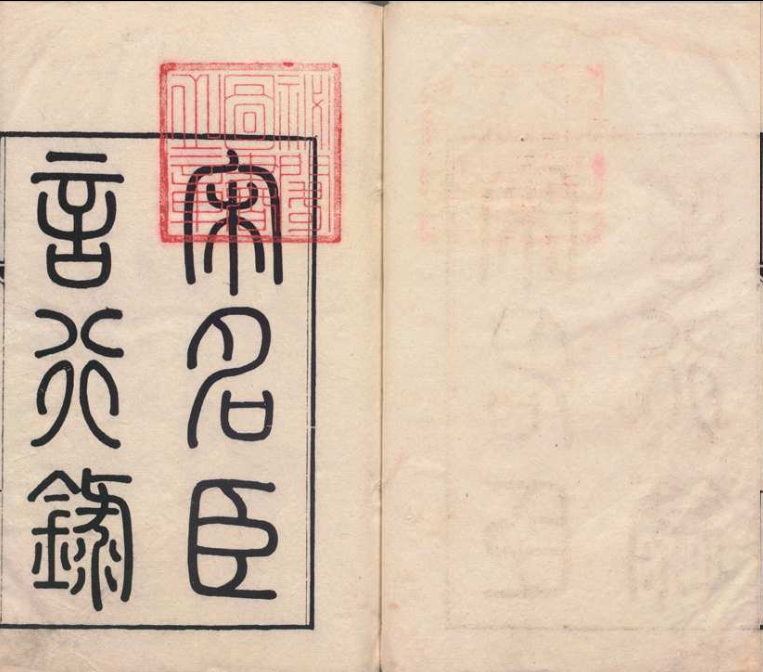 宋名臣
言行錄